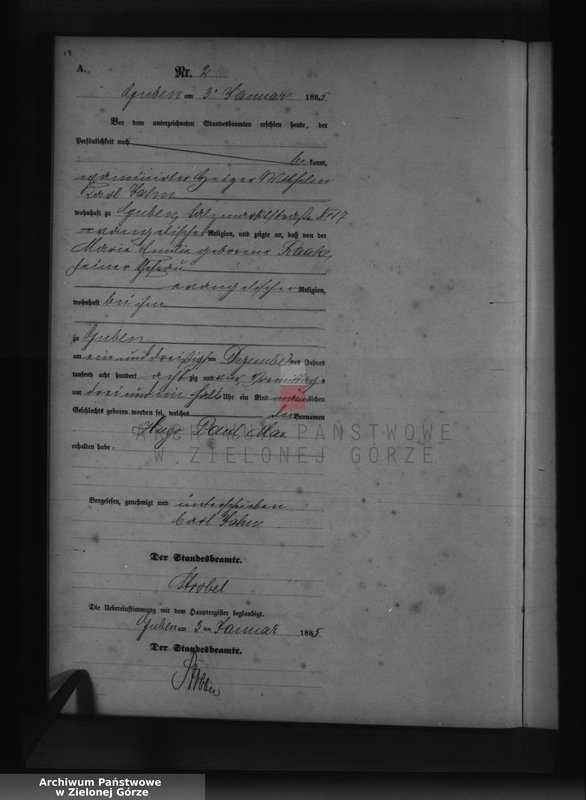 A.
Nr. 2
Guben am 3. Januar 1885
Vor dem unterzeichneten Standesbeamten erschien heute, der
Persönlichkeit nach
be kannt,
Wilhelm
Karl Jahn
wohnhaft zu Guben, Salzmarktstraße No 17
evangelischer Religion, und zeigte an, daß von der
Marie Emilie geborene Raak,
seiner Ehefrau
evangelischer Religion,
wohnhaft bei ihm
zu Guben
am ein und dreißigsten Dezember des Jahres
tausend acht hundert acht zig und vier Vormittags
um drei und ein halb Uhr ein Kind männlichen
Geschlechts geboren worden sei, welches die Vornamen
Hugo Paul Max
erhalten habe.
ARCHIWUM PAŃSTWOWE
W ZIELONEJ GÓRZE
Vorgelesen, genehmigt und unterschrieben
Carl Jahn
Der Standesbeamte.
Strobel
Die Uebereinstimmung mit dem Hauptregister beglaubigt.
Guben am 3 ten Januar 1885
Der Standesbeamte.
Archiwum Państwowe
w Zielonej Górze